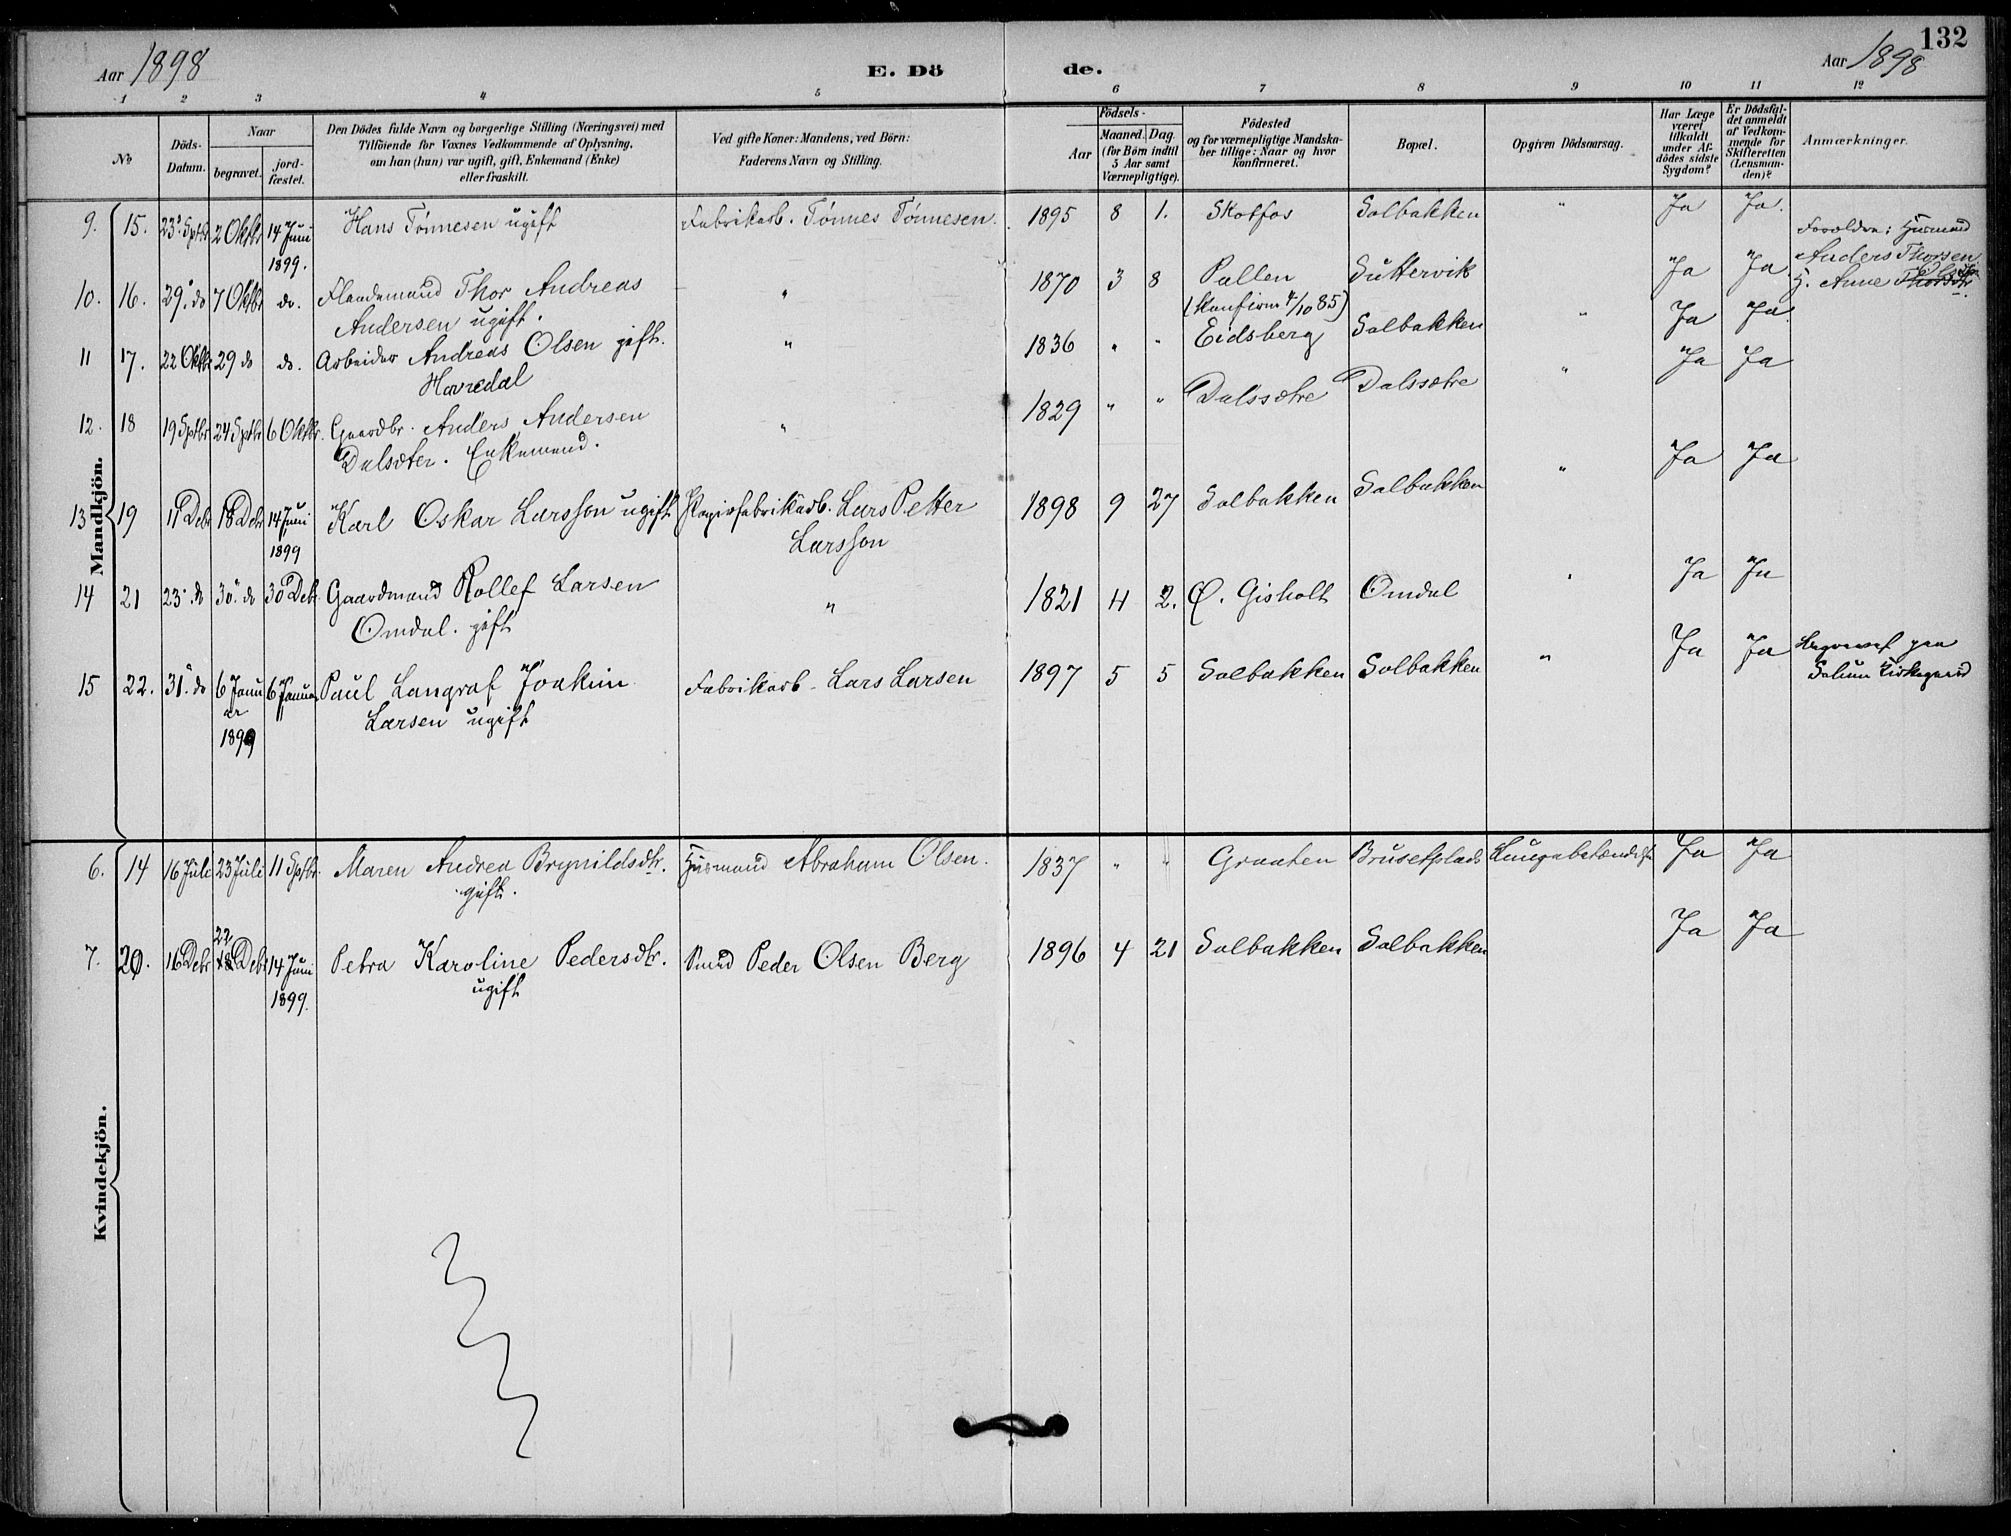 132
Aar 1898
E. Dö
de.
Aar 1898
1 2 3 4 5 6 7 8 9 10 11 12
No
Döds-Datum.
Naar
begravet.
jord-fæstet.
Den Dödes fulde Navn og borgerlige Stilling (Næringsvei) med
Tilföiende for Voxnes Vedkommende af Oplysning,
om han (hun) var ugift, gift, Enkemand (Enke)
eller fraskilt.
Ved gifte Koner: Mandens, ved Börn:
Faderens Navn og Stilling.
Födsels-
Aar
Maaned. Dag.
(for Börn indtil
5 Aar samt
Værnepligtige).
Födested
og for værnepligtige Mandska-
ber tillige: Naar og hvor
konfirmeret.
Bopæl.
Opgiven Dödsaarsag.
Har Læge
været
tilkaldt
under Af-
dödes sidste
Sygdom?
Er Dödsfal-
det anmeldt
af Vedkom-
mende for
Skifteretten
(Lensman-
den)?
Anmærkninger.
Mandkjön.
9. 15. 23. Sptbr 2 Oktbr 14 Juni Hans Tönnesen ugift Fabrikarb. Tönnes Tönnesen. 1895 8 1. Skotfos Solbakken " Ja Ja.
1899.
Forældre: Husmand
Anders Thorsen
10. 16. 29. do 7 Oktbr do. Thor Andreas " 1870 3 8 Pollen Suttervik Ja Ja
Andersen ugift. (Konfirm 4/10 85)
H. Anne Thorsdtr.
11 17. 22 Oktbr 29 do do. Arbeider Andreas Olsen gift. " 1836 " " Eidsberg Solbakken " Ja Ja
Havredal
12. 18 19 Sptbr 24 Sptbr 6 Oktbr. Gaardbr. Anders Andersen " 1829 " " Dalssætre Dalssætre " Ja Ja
Dalsæter. Enkemand.
13 19 11 Debr 18 Debr 14 Juni Karl Oskar Larsson ugift Papirfabrikarb. Lars Petter 1898 9 27 Solbakken Solbakken " Ja Ja
1899 Larsson
14 21 23. do 30. do 30 Debr Gaardmand Rollef Larsen " 1821 4 2. Ö. Gisholt Omdal " Ja Ja
Omdal. gift
15 22. 31. do 6 Janu 6 Januar Paul Langraf Joakim Fabrikarb. Lars Larsen 1897 5 5 Solbakken Solbakken " Ja Ja Begravet paa
ar Larsen ugift Solum Kirkegaard
1899
Kvindekjön.
6. 14 16 Juli 23 Juli 11 Sptbr. Maren Andrea Brynildsdtr. Husmand Abraham Olsen. 1837 " " Graaten Brusetplads Lungebetændelse Ja Ja
gift.
22
7. 20. 16 Debr Debr 14 Juni Petra Karoline Pedersdtr. Smed Peder Olsen Berg 1896 4 21 Solbakken Solbakken Ja Ja
1899. ugift